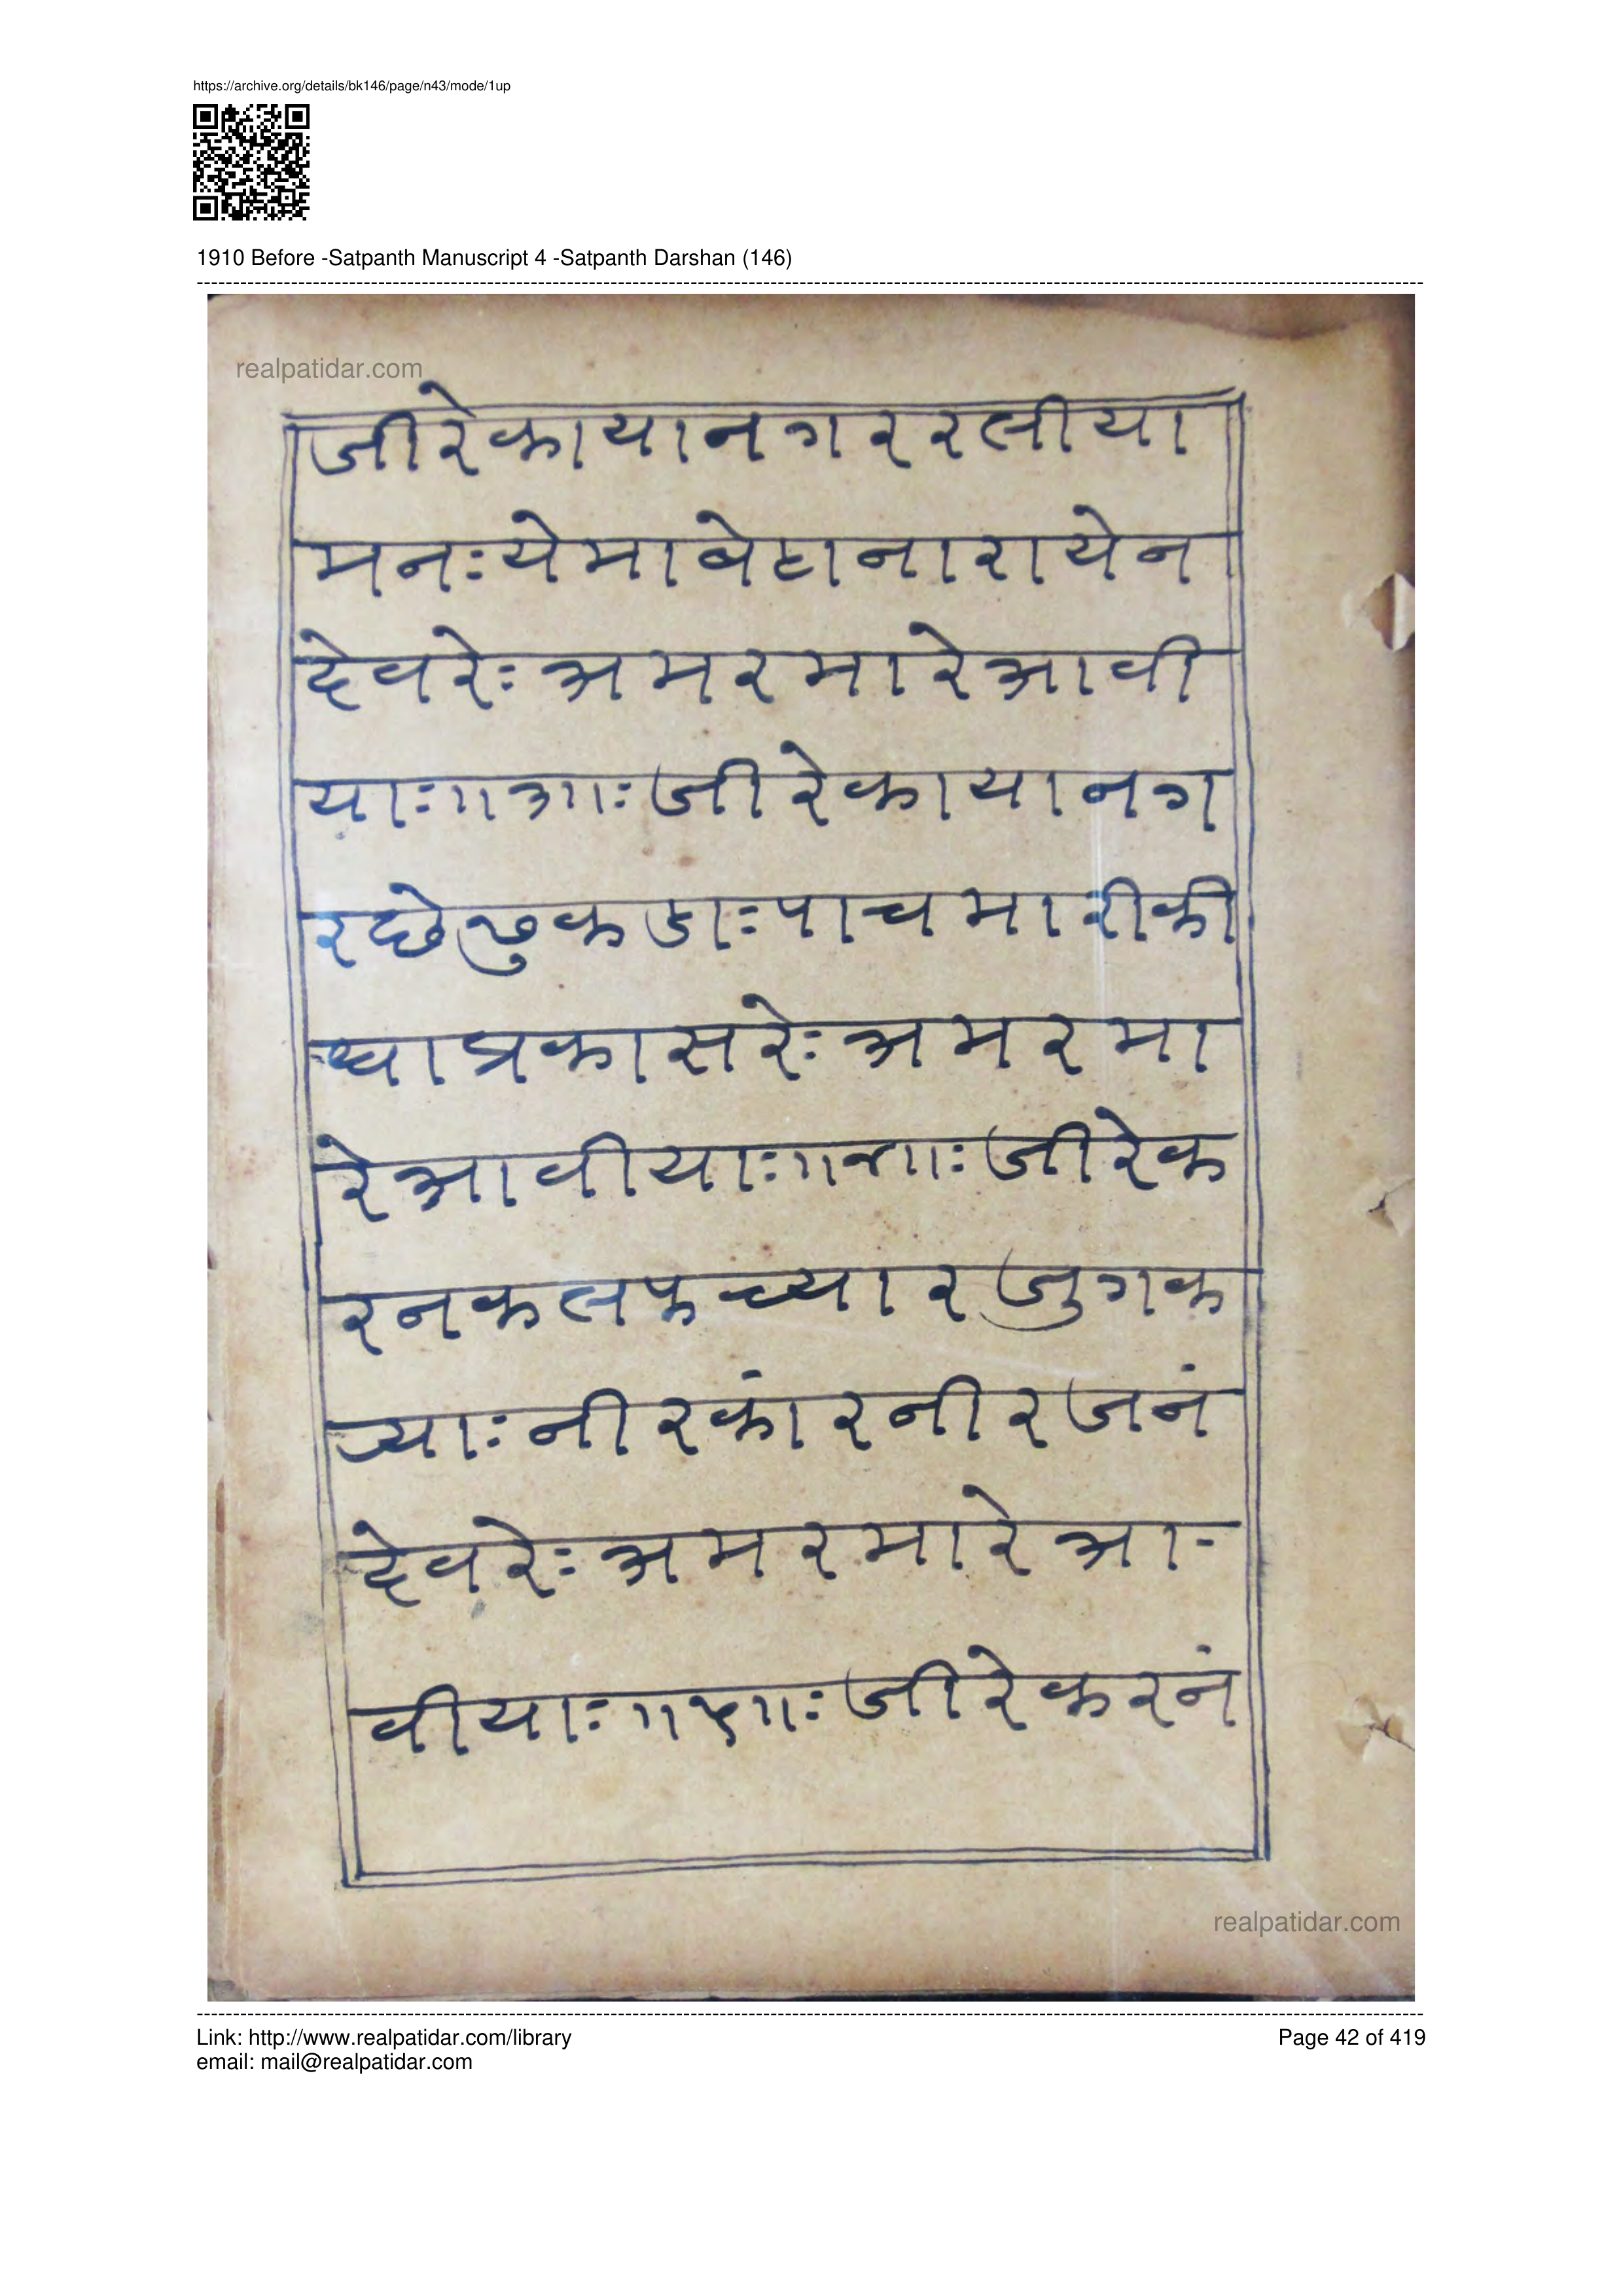 https://archive.org/details/bk146/page/n43/mode/1up
1910 Before -Satpanth Manuscript 4 -Satpanth Darshan (146)
realpatidar.com
जीरेकायानगररलीया
मनःयेमाबेठानारायेन
देवरेःअमरमारेआवी
याः॥३॥ःजीरेकायानग
रछेढुकडाःपाचमारीकी
धाप्रकासरेःअमरमा
रेआवीयाः॥४॥ःजीरेक
रनकलफच्यारजुगक
ज्याःनीरकांरनीरजनं
देवरेःअमरमारेआ-
वीयाः॥५॥ःजीरेकरनं
realpatidar.com
Link: http://www.realpatidar.com/library
Page 42 of 419
email: mail@realpatidar.com